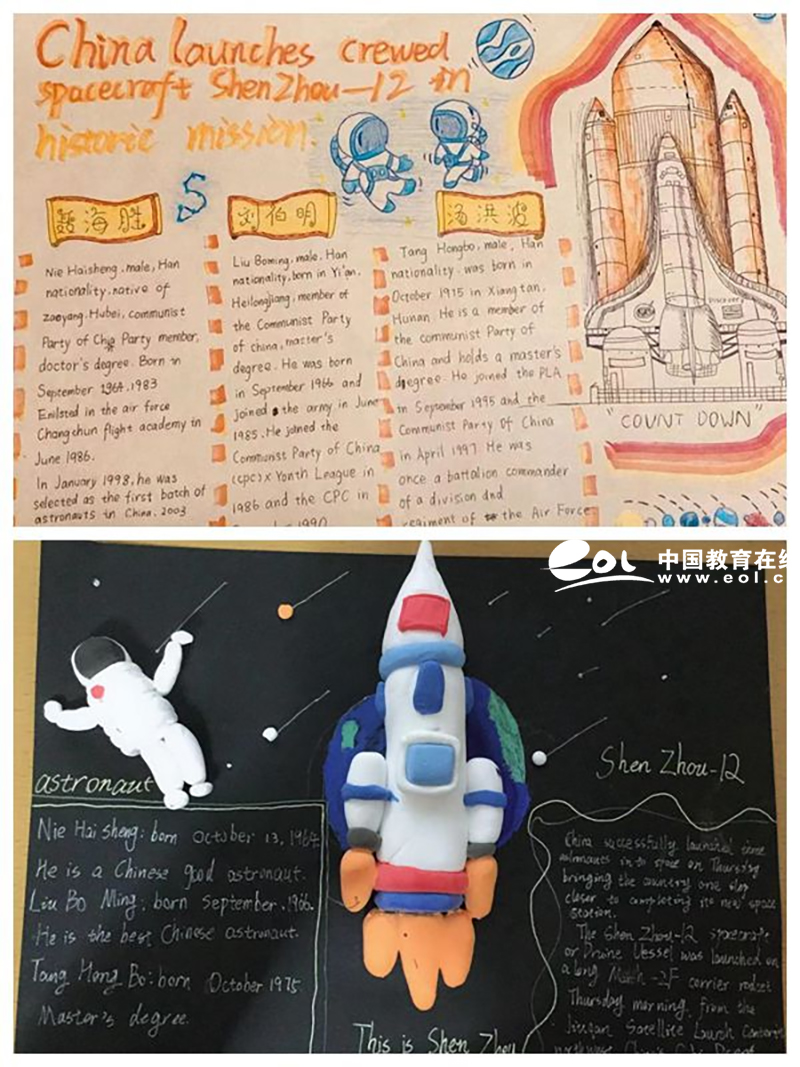 China launches crewed
spacecraft ShenZhou-12 in
historic mission.
聂海胜
S
刘伯明
汤洪波
Nie Haisheng, male, Han
nationality, native of
Zaoyang, Hubei, communist
Party of Party member,
doctor's degree. Born in
September 1964. 1983
Enlisted in the air force
Changchun flight academy in
June 1986.
In January 1998, he was
selected as the first batch of
astronauts in China. 2003
Liu Boming, male, Han
nationality, born in Yi'an,
Heilongjiang, member of
the Communist Party
of china, master's
degree. He was born
in September 1966 and
joined the army in June
1985. He joined the
Communist Party of China
(cpc) x Yonth League in
1986 and the CPC in
1990
Tang Hongbo, male, Han
nationality was born in
October 1975 in Xiangtan,
Hunan. He is a member of
the communist Party of
China and holds a master's
degree. He joined the PLA
in September 1995 and the
Communist Party Of China
in April 1997. He was
once a battalion commander
of a division dnd
regiment of the Air Force
Discover
"COUNT DOWN"
eol 中国教育在线
www.eol.c
astronaut
Nie Hai Sheng: born October 13, 1964.
He is a Chinese good astronaut.
Liu Bo Ming: born September, 1966.
He is the best Chinese astronaut.
Tang Hong Bo: born October 1975
Master's degree.
This is Shen Zhou
Shen Zhou-12
China successfully launched three
astronauts in to space on Thursday
bringing the country one step
closer to completing its new space
station.
The Shen Zhou-12 spacecraft
or Divine Vessel was launched on
a long March-2F carrier rocket
Thursday morning, from the
Jiuquan Satellite Launch
northwest